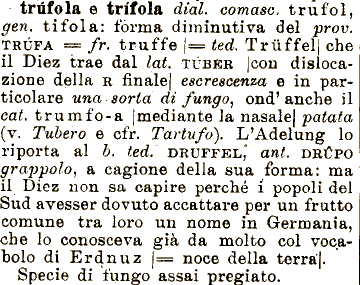 trúfola e trífola dial. comasc. trufol,
gen. tifola: forma diminutiva del prov.
TRÚFA = fr. truffe |= ted. Trüffel| che
il Diez trae dal lat. TÚBER |con disloca-
zione della R finale| escrescenza e in par-
ticolare una sorta di fungo, ond' anche il
cat. trumfo-a |mediante la nasale| patata
(v. Tubero e cfr. Tartufo). L'Adelung lo
riporta al b. ted. DRUFFEL, ant. DRÛPO
grappolo, a cagione della sua forma: ma
il Diez non sa capire perché i popoli del
Sud avesser dovuto accattare per un frutto
comune tra loro un nome in Germania,
che lo conosceva già da molto col voca-
bolo di Erdnuz |= noce della terra|.
Specie di fungo assai pregiato.